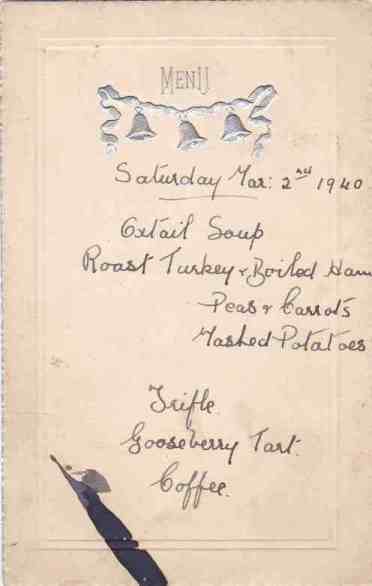 MENU
Saturday Mar: 2nd 1940
Oxtail Soup
Roast Turkey & Boiled Ham
Peas & Carrots
Mashed Potatoes
Trifle.
Gooseberry Tart.
Coffee.